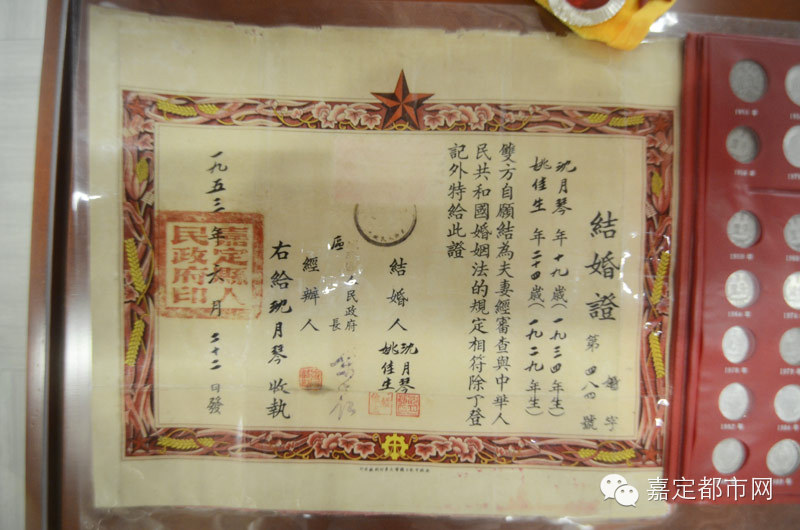 結婚證
字
第四八四號
沈月琴 年十九歲(一九三四年生)
姚佳生 年二十四歲(一九二九年生)
雙方自願結為夫妻經審查與中華人
民共和國婚姻法的規定相符除了登
記外特給此證
結婚人
沈月琴
姚佳生
區
人民政府
長
經辦人
右給沈月琴收執
一九五三年六月二十二日發
嘉定縣人
民政府印
嘉定都市网